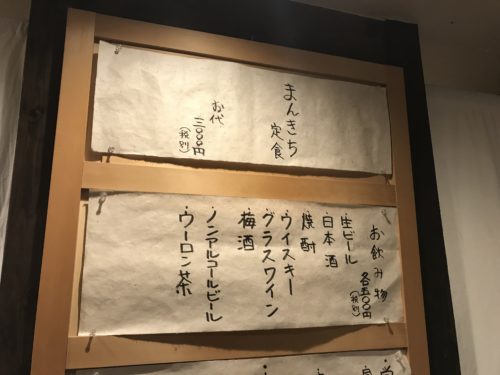 まんきち
定食
お代
三〇〇〇円
(税別)
お飲み物
各五〇〇円
(税別)
・生ビール
・日本酒
・焼酎
・ウイスキー
・グラスワイン
・梅酒
・ノンアルコールビール
・ウーロン茶